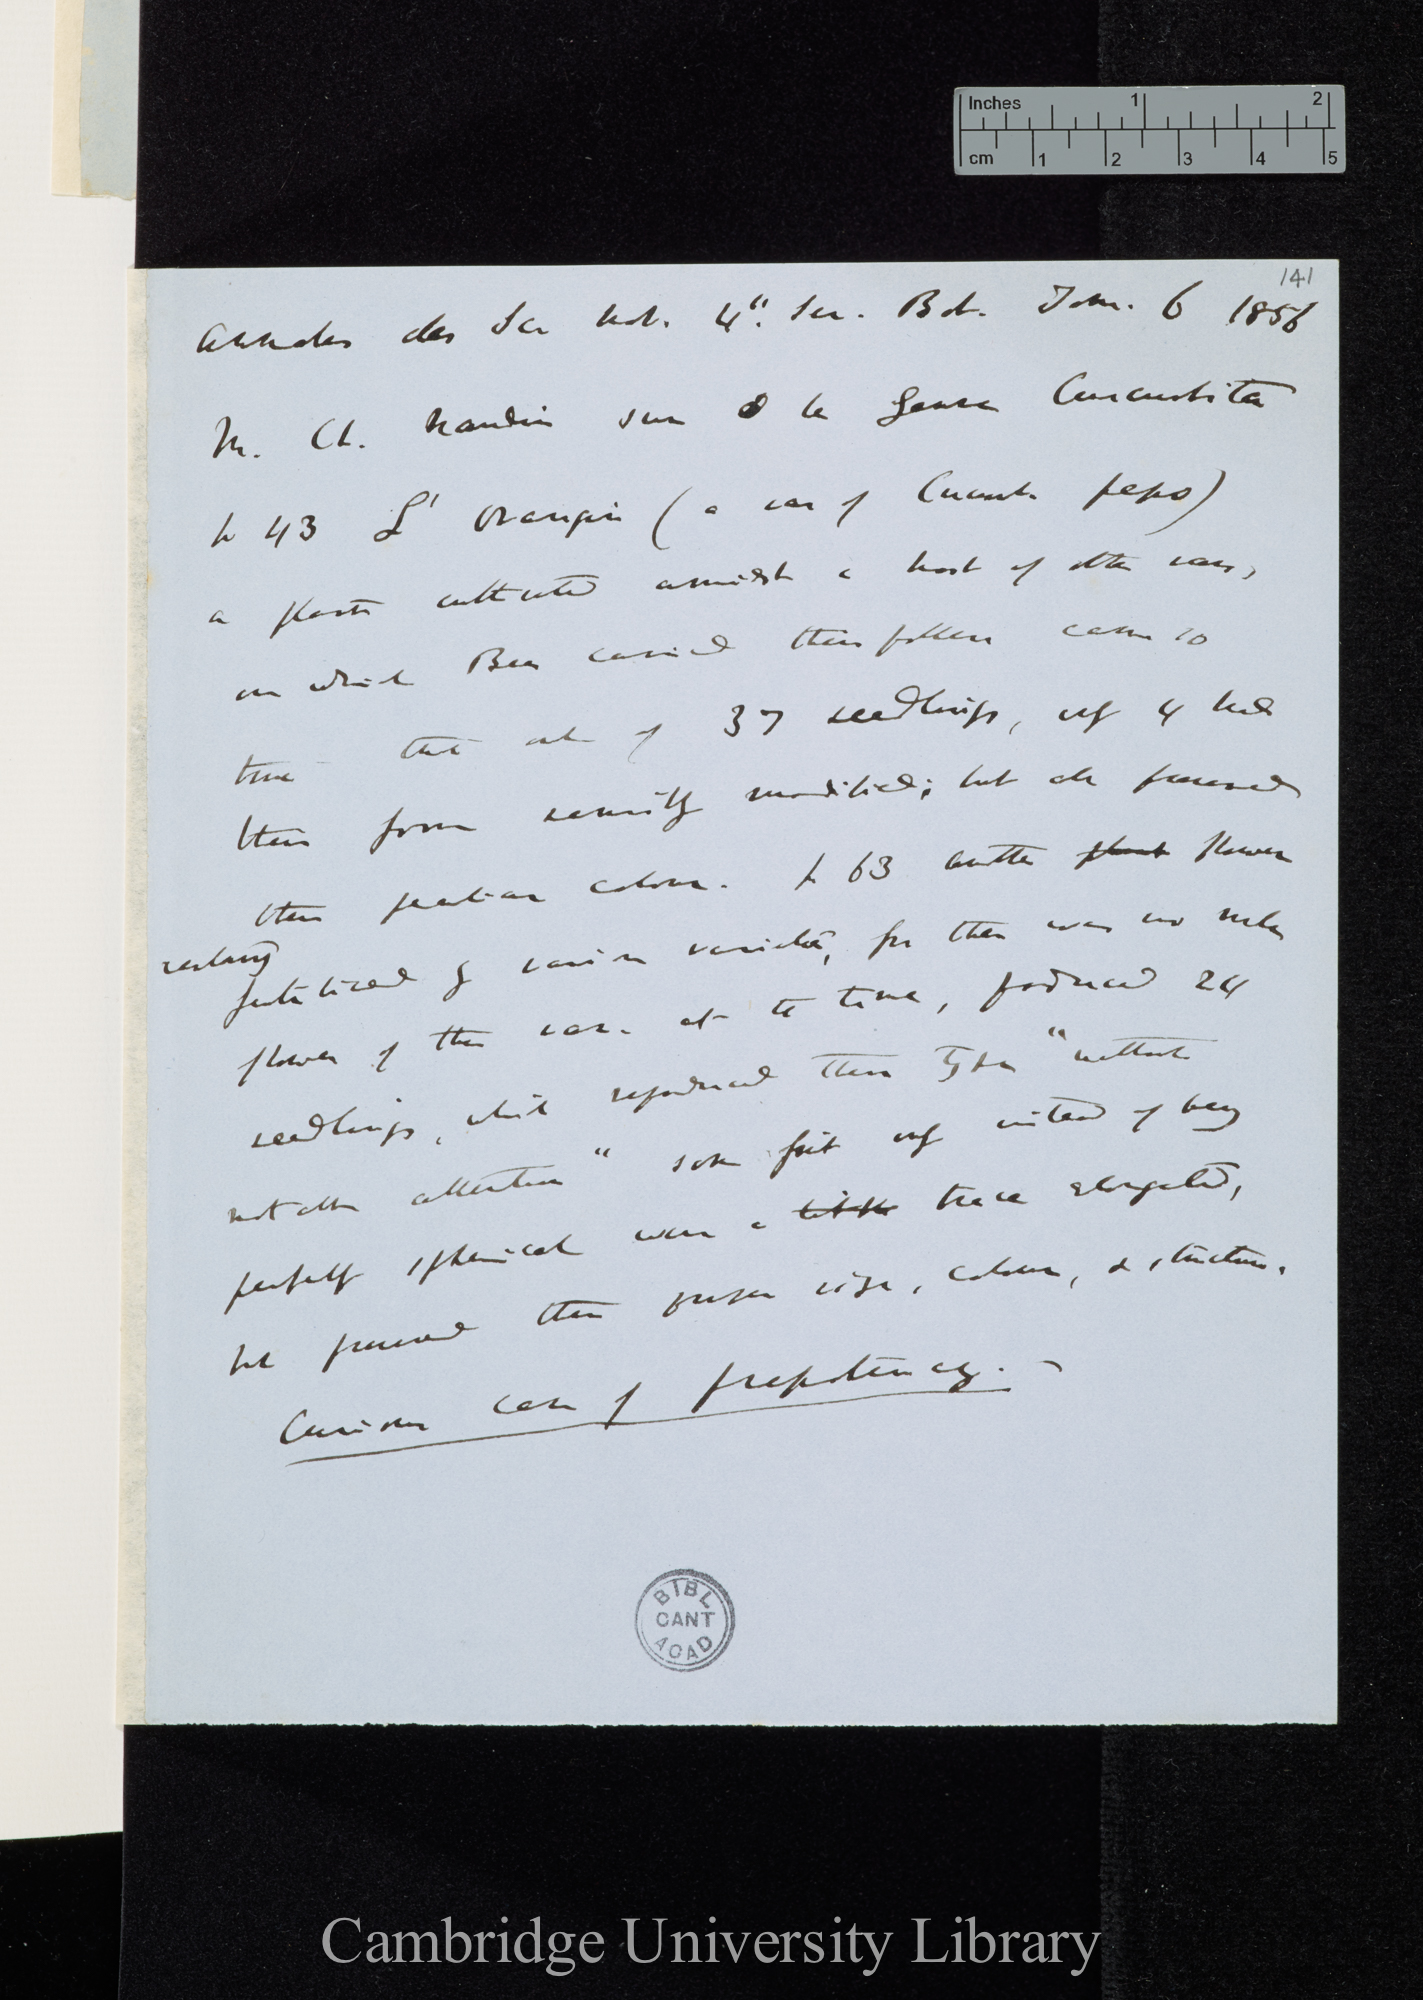 Inches 1 2
cm 1 2 3 4 5
141
Annales des Sci Nat. 4". Ser. Bot. Tom. 6 1856
M. Ch. Naudin sur le Genre Cucurbita
p 43 L' Orangin (a var of Cucurb. pepo)
a plant cultivated amidst a host of other vars,
on which Bees carried their pollen came so
true that out of 37 seedlings, only 4 had
their form sensibly modified; but all preserved
their peculiar colour. p 63 another plant flower
certainly
fertilised by various varieties, for there was no male
flower of this var. at the time, produced 24
seedlings, which reproduced their type "without
notable alteration" some fruit only instead of being
perfectly spherical were a little trace elongated,
but preserved their proper size, colour, & structure.
Curious case of prepotency. —
BIBL
CANT
ACAD
Cambridge University Library